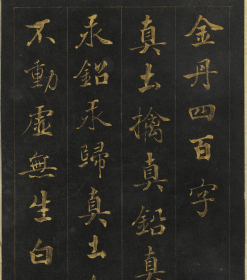 金丹四百字
真土擒真鉛真
汞鉛汞歸真土
不動虛無生白